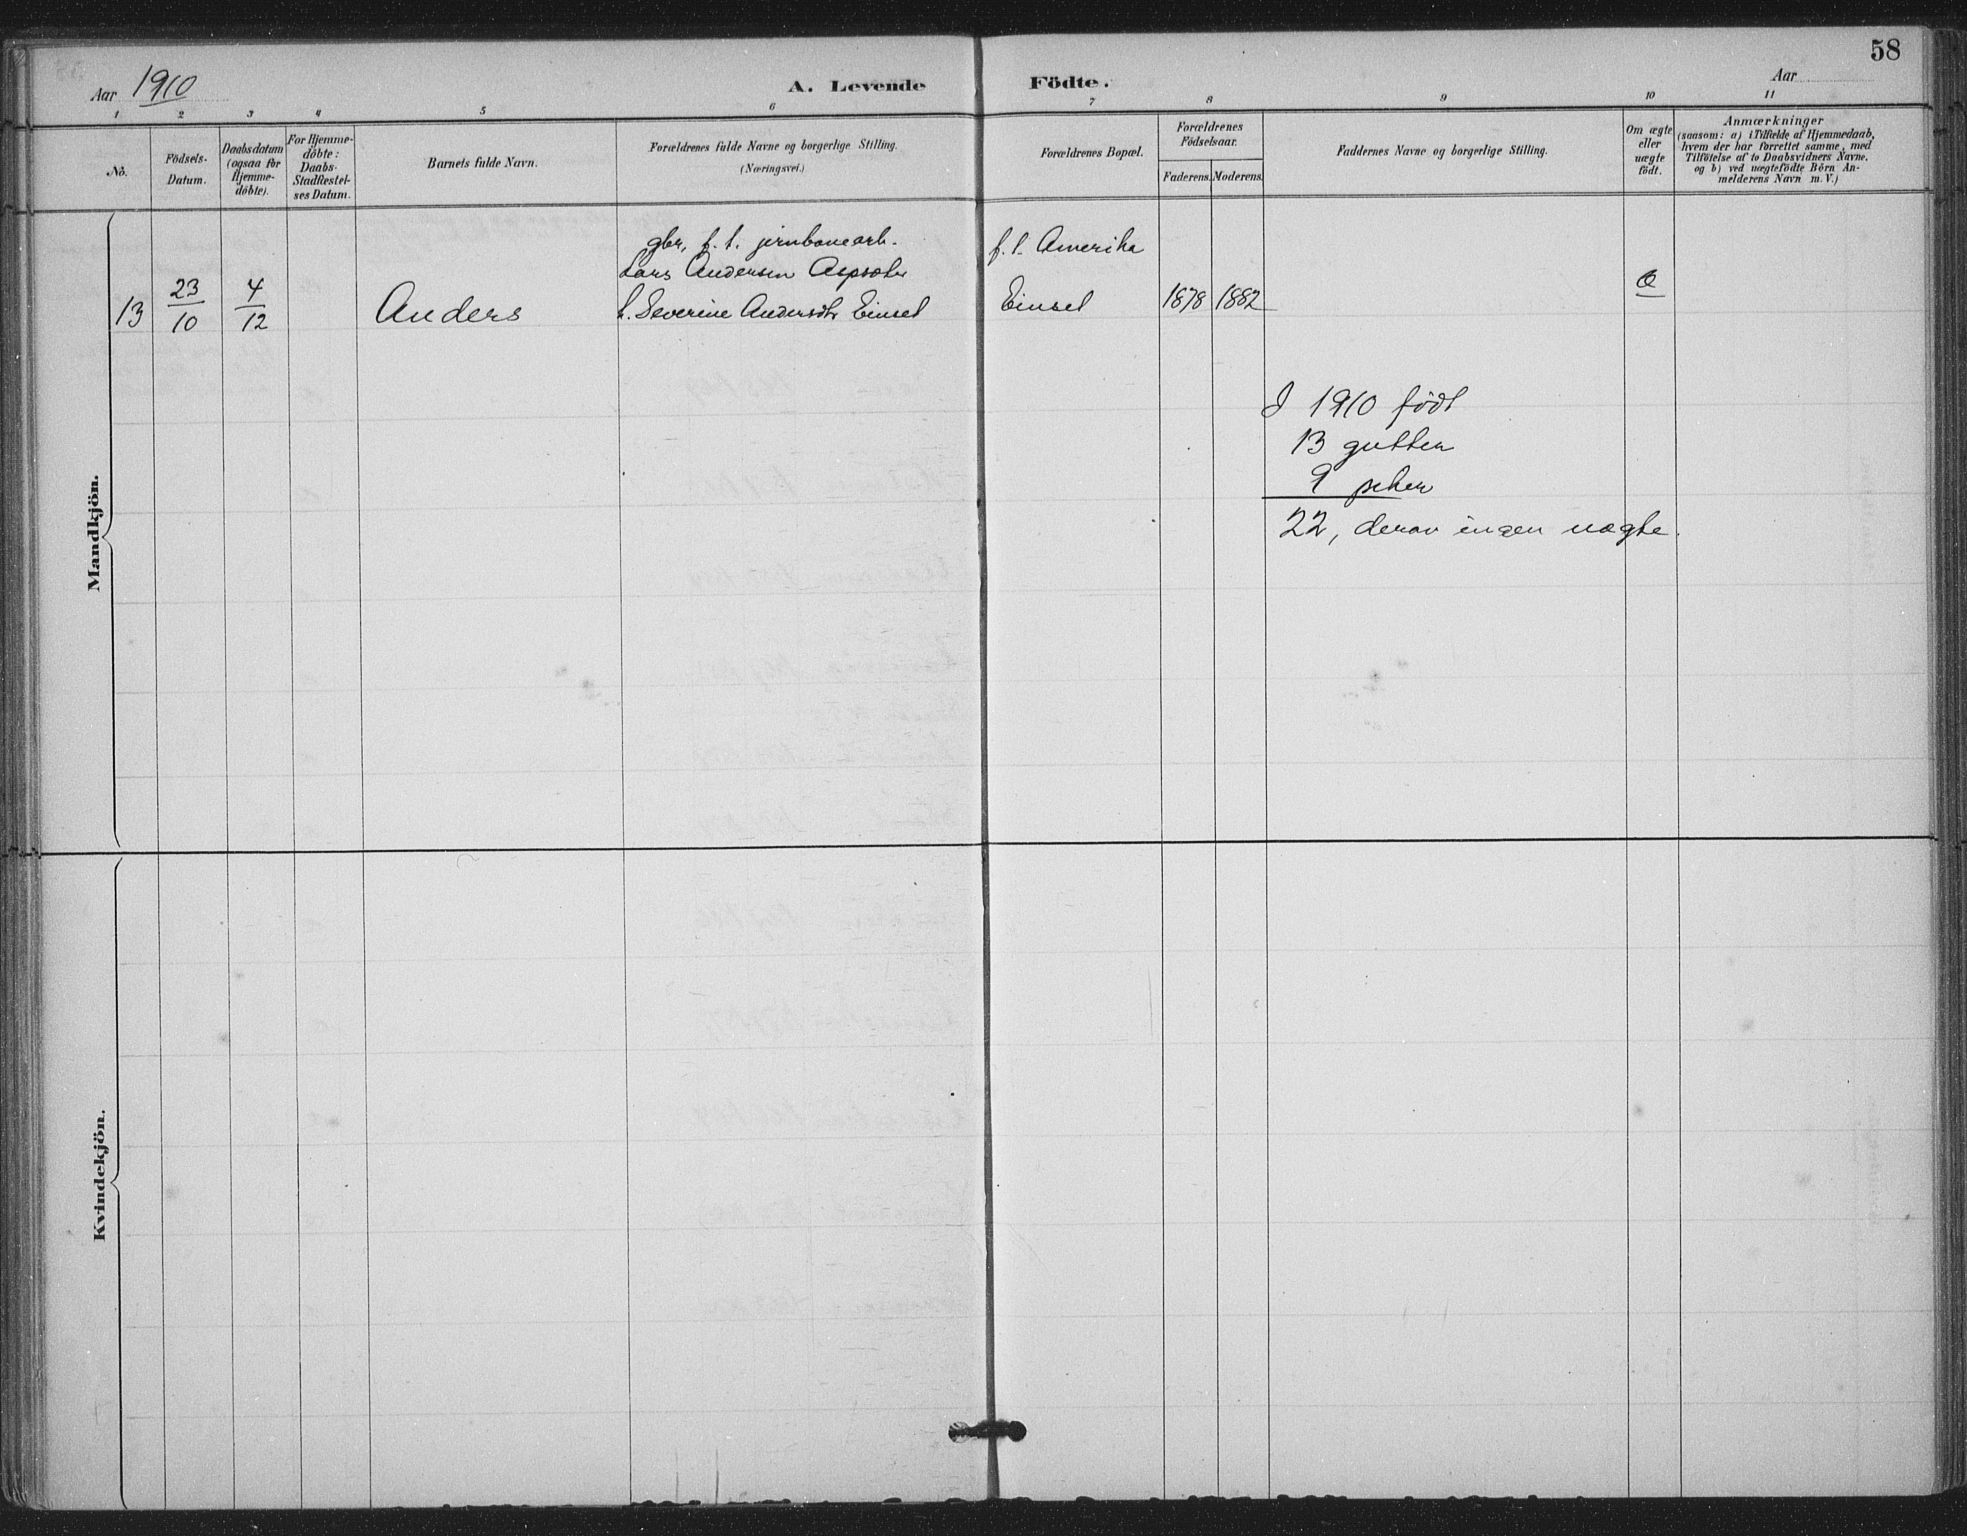 58
Aar 1910
A. Levende Födte.
Aar
1 2 3 4 5 6 7 8 9 10 11
No.
Födsels-
Datum.
Daabsdatum
(ogsaa for
Hjemme-
döbte).
For Hjemme-
döbte:
Daabs-
Stadfæstel-
ses Datum.
Barnets fulde Navn.
Forældrenes fulde Navne og borgerlige Stilling.
(Næringsvei.)
Forældrenes Bopæl.
Forældrenes
Födselsaar.
Faderens. Moderens.
Faddernes Navne og borgerlige Stilling.
Om ægte
eller
uægte
födt.
Anmærkninger
(saasom: a) i Tilfælde af Hjemmedaab,
hvem der har forrettet samme, med
Tilföielse af to Daabsvidners Navne,
og b) ved uægtefödte Börn An-
melderens Navn m. V.)
Mandkjön.
gbr, f. t. jernbanearb.
Lars Andersen Aspsæter
13 23/10 4/12 Anders
h. Severine Andersdtr Einset
f. t. Amerika
Einset 1878 1882
I 1910 födt
13 gutter
9 piker
22, derav ingen uægte.
Kvindekjön.